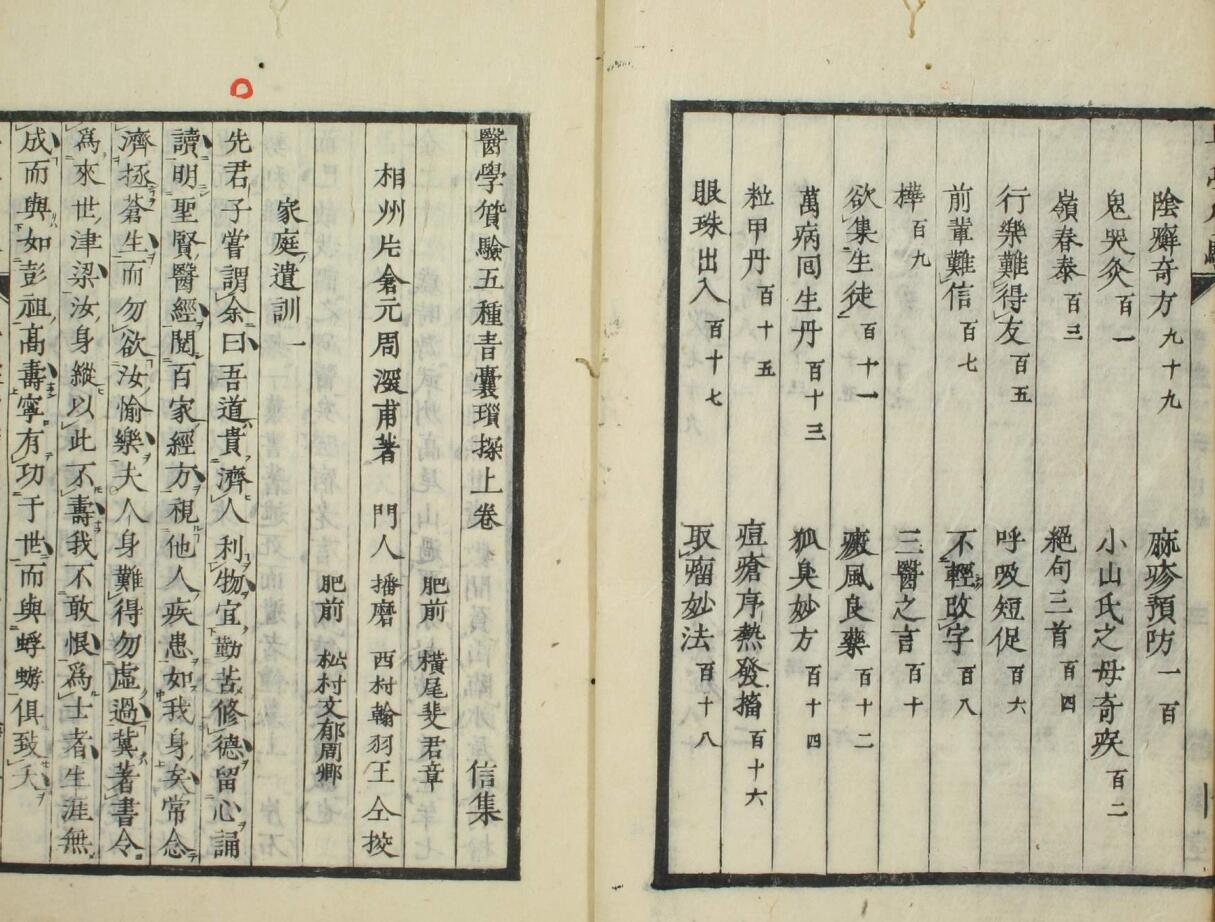 陰癬奇方 九十九
麻疹預防 一百
鬼哭灸 百一
小山氏之母奇疾 百二
嶺春泰 百三
絕句三首 百四
行樂難得友 百五
呼吸短促 百六
前輩難信 百七
不輕改字 百八
樺 百九
三醫之言 百十
欲集生徒 百十一
癩風良藥 百十二
萬病回生丹 百十三
狐臭妙方 百十四
粒甲丹 百十五
痘瘡序熱發搐 百十六
眼珠出入 百十七
取瘤妙法 百十八
醫學質驗五種青囊瑣探上卷
相州片倉元周深甫著 門人
肥前 橫尾斐君章
播磨 西村翰羽王 仝挍
肥前 松村文郁周卿
信集
家庭遺訓一
先君子嘗謂余曰吾道貴濟人利物宜勤苦修德留心誦
讀明聖賢醫經閱百家經方視他人疾患如我身矣常念
濟拯蒼生而勿欲汝愉樂夫人身難得勿虛過冀著書令
為來世津梁汝身縱以此不壽我不敢恨為士者生涯無
成而與如彭祖高壽寧有功于世而與蜉蝣俱致夭